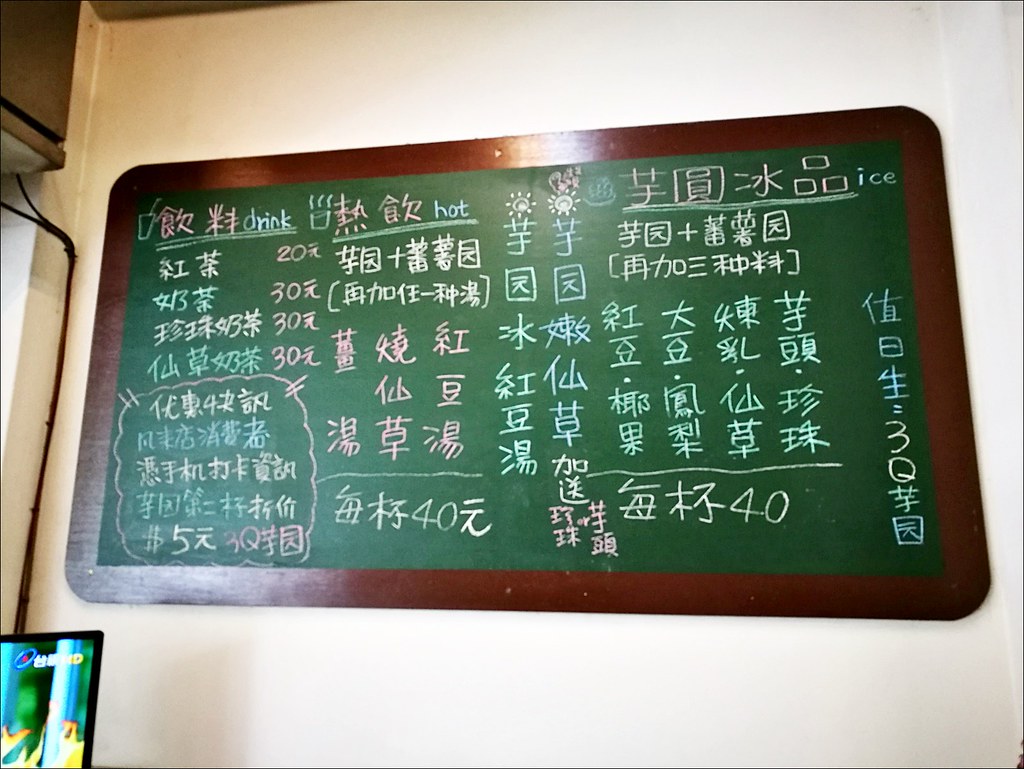 飲料drink
紅茶 20元
奶茶 30元
珍珠奶茶 30元
仙草奶茶 30元
优惠快訊
凡来店消費者
憑手机打卡資訊
芋园第二杯折价
$5元 3Q芋园
熱飲 hot
芋园+蕃薯园
[再加任一种湯]
薑湯
燒仙草
紅豆湯
每杯40元
芋园冰紅豆湯
芋园嫩仙草
加送
珍珠 or 芋頭
芋圓冰品ice
芋园+蕃薯园
[再加三种料]
紅豆·椰果
大豆·鳳梨
煉乳·仙草
芋頭·珍珠
每杯40
值日生:3Q芋园
台視HD